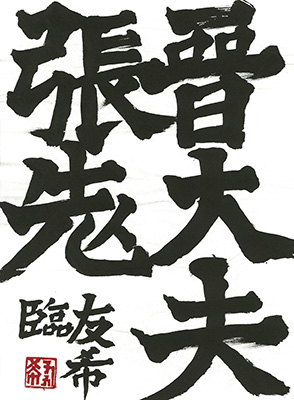 晋大夫
張老
友希
臨